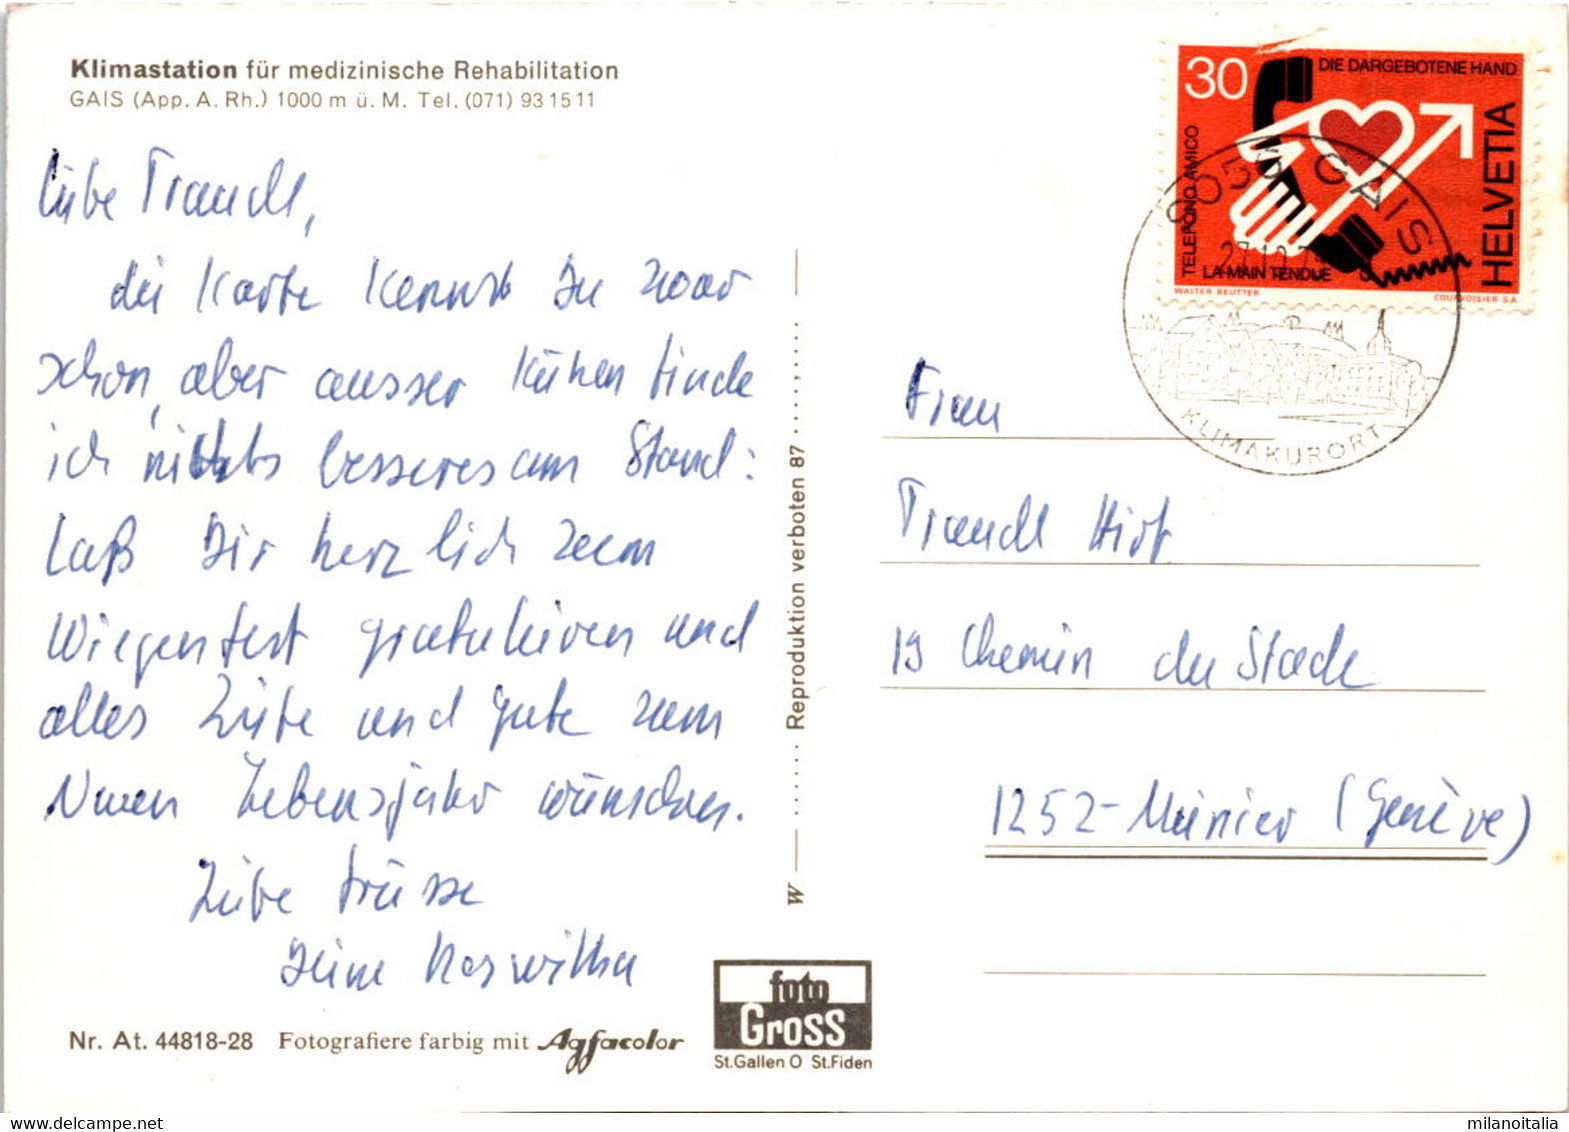 Klimastation für medizinische Rehabilitation
GAIS (App. A. Rh.) 1000 m ü. M. Tel. (071) 93 15 11
Liebe Traudl,
die Karte kennst Du zwar
schon, aber ausser Kühen finde
ich nichts besseres am Stand:
Laß Dir herzlich zum
Wiegenfest gratulieren und
alles Liebe und Gute zum
Neuen Lebensjahr wünschen.
Liebe Grüsse
Deine Roswitha
Nr. At. 44818-28 Fotografiere farbig mit Agfacolor
W Reproduktion verboten 87
foto
Gross
St.Gallen O St.Fiden
30
DIE DARGEBOTENE HAND
TELEFONO AMICO
LA MAIN TENDUE
HELVETIA
WALTER BEUTTER
COURVOISIER S.A.
9056 GAIS
KLIMAKURORT
Frau
Traudl Hirt
19 Chemin du Stade
1252-Meinier (Genève)
milanoitalia